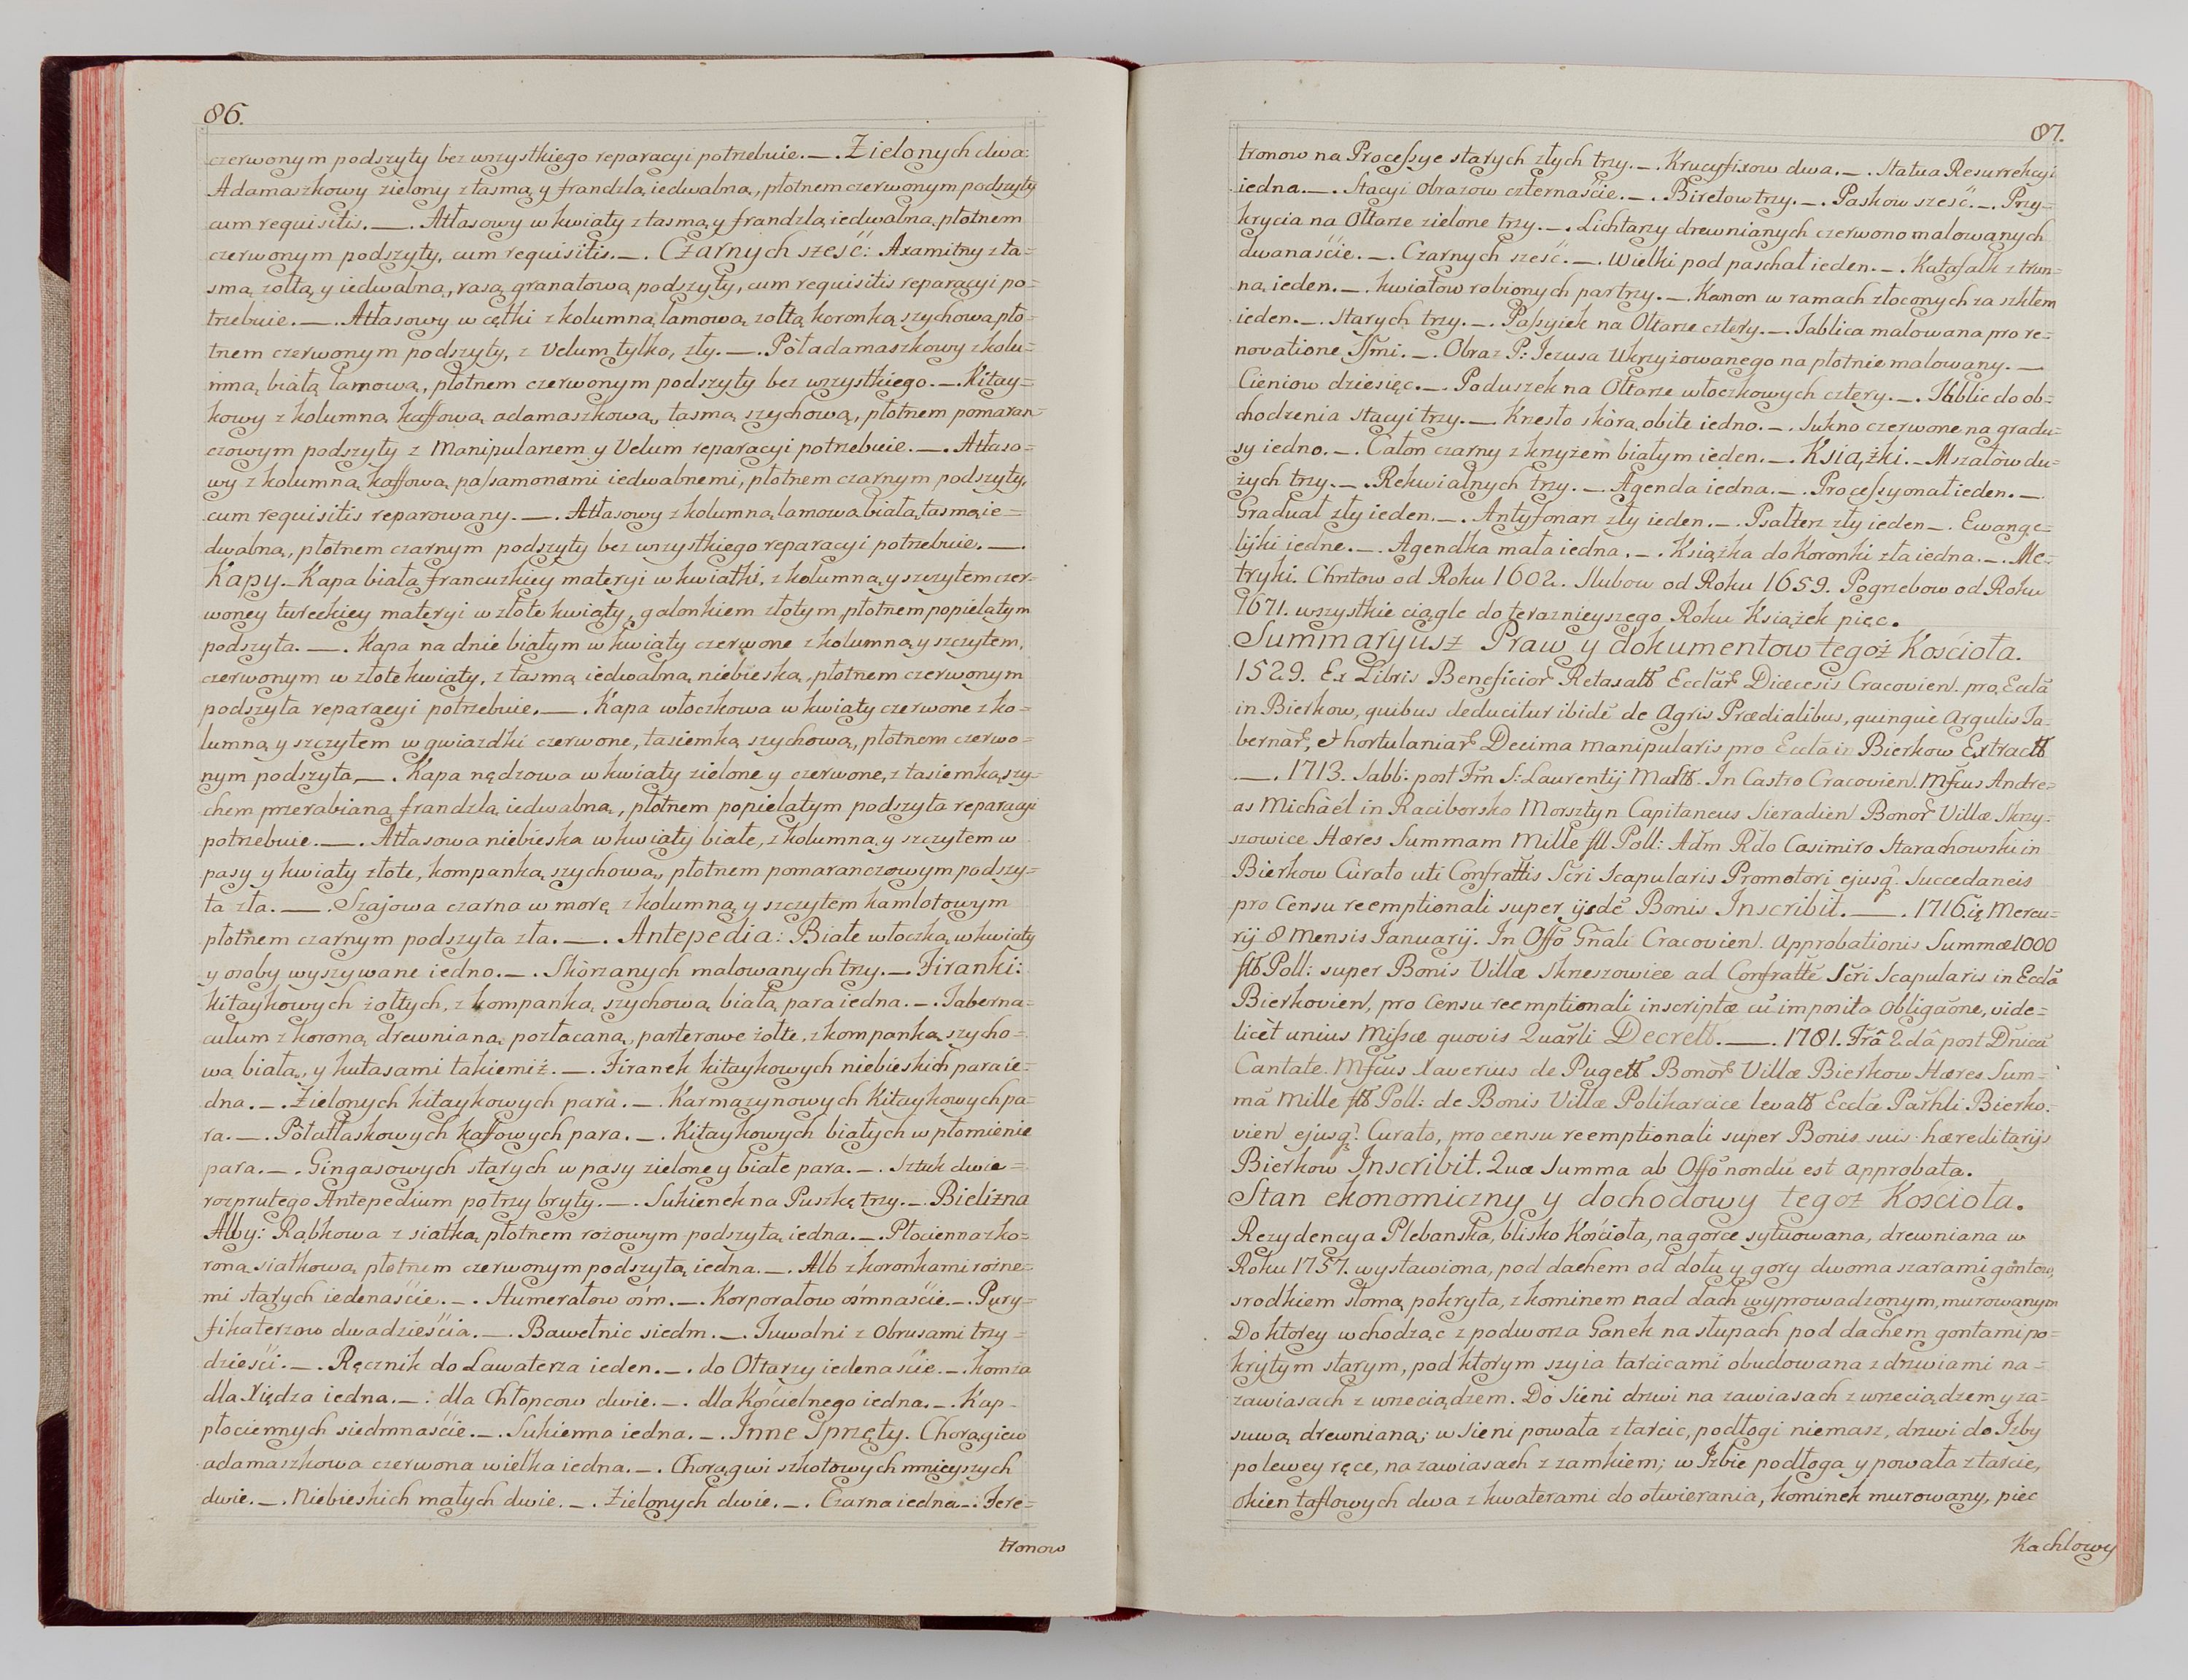 86.
czerwonym podszyty bez wszystkiego reparacyi potrzebuie. _ . Zielonych dwa:
Adamaszkowy zielony z tasmą y frandzlą iedwalną, płotnem czerwonym podszyty
cum requisitis. _ . Atłasowy w kwiaty z tasmą y frandzlą iedwalną płotnem
czerwonym podszyty, cum requisitis. _ . Czarnych sześć: Axamitny z ta=
smą zołtą y iedwalną, rasą granatową podszyty, cum requisitis reparacyi po=
trzebuie. _ . Atłasowy w cętki z kolumną lamową zołtą koronką szychową pło=
tnem czerwonym podszyty, z Velum tylko, zły. _ . Pòładamaszkowy z kolu=
mną białą lamową, płotnem czerwonym podszyty bez wszystkiego. _ . Kitay=
kowy z kolumną kaffową adamaszkową, tasmą szychową, płotnem pomaran=
czowym podszyty z Manipularzem y Velum reparacyi potrzebuie. _ . Atłaso=
wy z kolumną kaffową passamonami iedwabnemi, płotnem czarnym podszyty,
cum requisitis reparowany. _ . Atłasowy z kolumną lamową białą tasmą ie=
dwalną, płotnem czarnym podszyty bez wszystkiego reparacyi potrzebuie. _ .
Kapy. _ Kapa biała francuzkiey materyi w kwiatki, z kolumną y szczytem czer=
woney tureckiey materyi w złote kwiaty, galonkiem złotym, płotnem popielatym
podszyta. _ . Kapa na dnie białym w kwiaty czerwone z kolumną y szczytem,
czerwonym w złote kwiaty, z tasmą iedwalną niebieską, płotnem czerwonym
podszyta reparacyi potrzebuie. _ . Kapa włoczkowa w kwiaty czerwone z ko=
lumną y szczytem w gwiazdki czerwone, tasiemką szychową, płotnem czerwo=
nym podszyta. _ . Kapa nędzowa w kwiaty zielone y czerwone, z tasiemką szy=
chem przerabianą frandzlą iedwalną, płotnem popielatym podszyta reparacyi
potrzebuie. _ . Atłasowa niebieska w kwiaty białe, z kolumną y szczytem w
pasy y kwiaty złote, kompanką szychową, płotnem pomaranczowym podszy=
ta zła. _ . Szajowa czarna w morę z kolumną y szczytem kamlotowym
płotnem czarnym podszyta zła. _ . Antepedia: Białe włoczką w kwiaty
y osoby wyszywane iedno. _ . Skòrzanych malowanych trzy. _ Firanki:
kitaykowych żołtych, z kompanką szychową białą para iedna. _ . Taberna=
culum z koroną drewnianą pozłacaną, parterowe żołte, z kompanką szycho=
wą białą, y kutasami takiemiż. _ . Firanek kitaykowych niebieskich para ie=
dna. _ . Zielonych kitaykowych para. _ . Karmazynowych Kitaykowych pa=
ra. _ . Pòłatłaskowych kaffowych para. _ . Kitaykowych białych w płomienie
para. _ . Gingasowych starych w pasy zielone y białe para. _ . Sztuk dwie=
rozprutego Antepedium po trzy bryty. _ . Sukienek na Puszkę trzy. _ . Bielizna
Alby: Rąbkowa z siatką, płotnem rożowym podszyta, iedna. _ . Płocienna z ko=
roną siatkową płotnem czerwonym podszyta, iedna. _ . Alb z koronkami rożne=
mi starych iedenaście. _ . Humerałow ośm. _ . Korporałow ośmnaście. _ . Pury=
fikaterzow dwadzieścia. _ . Bawełnic siedm. _ . Tuwalni z Obrusami trzy=
dzieści. _ . Ręcznik do Lawaterza ieden. _ . do Ołtarzy iedenaście. _ . komża
dla Xiędza iedna. _ : dla Chłopcow dwie. _ . dla Kościelnego iedna. _ . Kap
płociennych siedmnaście. _ . Sukienna iedna. _ . Inne Sprzęty. Chorągiew
adamaszkowa czerwona wielka iedna. _ . Chorągwi szkotowych mnieyszych
dwie. _ . Niebieskich małych dwie. _ . Zielonych dwie. _ . Czarna iedna. _ . Fere=
tronow
87.
tronow na Processye starych złych trzy. _ . Krucyfixow dwa. _ . Statua Resurrekcyi
iedna. _ . Stacyi Obrazow czternaście. _ . Biretow trzy. _ . Paskow sześć. _ . Przy=
krycia na Ołtarze zielone trzy. _ . Lichtarzy drewnianych czerwono malowanych
dwanaście. _ . Czarnych sześć. _ . Wielki pod paschał ieden. _ . Katafalk z trun=
ną ieden. _ . kwiatow robionych par trzy. _ . Kanon w ramach złoconych za szkłem
ieden. _ . Starych trzy. _ . Passyiek na Ołtarze cztery. _ . Tablica malowana pro re=
novatione SSmi. _ . Obraz P: Jezusa Ukrzyżowanego na płotnie malowany. _
Cieniow dziesięc. _ . Poduszek na Ołtarze włoczkowych cztery. _ . Tablic do ob=
chodzenia stacyi trzy. _ . Krzesło skòrą obite iedno. _ . Sukno czerwone na gradu=
sy iedno. _ . Całon czarny z krzyżem białym ieden. _ . Książki. _ Mszałòw du=
żych trzy. _ . Rekwialnych trzy. _ . Agenda iedna. _ . Processyonał ieden. _
Graduał zły ieden. _ . Antyfonarz zły ieden. _ . Psałterz zły ieden _ . Ewange=
lijki iedne. _ . Agendka mała iedna. _ . Książka do Koronki zła iedna. _ . Me=
tryki. Chrztow od Roku 1602. Slubow od Roku 1659. Pogrzebow od Roku
1671. wszystkie ciągle do teraznieyszego Roku Książek pięc.
Summaryusz Praw y dokumentow tegoż Kościoła.
1529. Ex Libris Beneficior Retaxat Ecclar Diæcesis Cracovien. pro Eccla
in Bierkow, quibus deducitur ibidē de Agris Prædialibus, quinquè Argulis Ta=
bernar, et hortulaniar Decima manipularis pro Eccla in Bierkow Extract
_ . 1713. Sabb: post Fm S: Laurentij Mart. In Castro Cracovien. Mfcus Andre=
as Michaël in Raciborsko Morsztyn Capitaneus Sieradien Bonor Villæ Skrzy=
szowice Hæres Summam Mille fll Poll: Adm Rdo Casimiro Starachowski in
Bierkow Curato uti Confrattis Scri Scapularis Promotori ejusq. Succedaneis
pro Censu reemptionali super ijsdē Bonis Inscribit. _ . 1716. ię Mercu=
rij 8 Mensis Januarij. In Offo Gnali Cracovien. Approbationis Summæ 1000
flt Poll: super Bonis Villæ Skrzeszowice ad Confrattē Scri Scapularis in Eccla
Bierkovien, pro Censu reemptionali inscriptæ cū imposita Obligaōne, vide=
licèt unius Missæ quovis Quarli Decrett. _ . 1781. Frâ 2dâ post Dnicā
Cantate. Mfcus Xaverius de Pugett Bonor Villæ Bierkow Hæres Sum=
mā Mille flt Poll: de Bonis Villæ Polikarcice levatt Ecclæ Parhli Bierko=
vien ejusq. Curato, pro censu reemptionali super Bonis suis hæreditarijs
Bierkow Inscribit. Quæ Summa ab Offo nondū est approbata.
Stan ekonomiczny y dochodowy tegoż Kościoła.
Rezydencya Plebanska, blisko Kościoła, na gorce sytuowana, drewniana w
Roku 1757. wystawiona, pod dachem od dołu y gory dwoma szarami gontow,
srodkiem słomą pokryta, z kominem nad dach wyprowadzonym, murowanym
Do ktorey wchodząc z podworza Ganek na słupach pod dachem gontami po=
krytym starym, pod ktorym szyia tarcicami obudowana z drzwiami na=
zawiasach z wrzeciądzem. Do Sieni drzwi na zawiasach z wrzeciądzem y za=
suwą drewnianą; w Sieni powała z tarcic, podłogi niemasz, drzwi do Izby
po lewey ręce, na zawiasach z zamkiem; w Izbie podłoga y powała z tarcic,
okien taflowych dwa z kwaterami do otwierania, kominek murowany, piec
Kachlowy